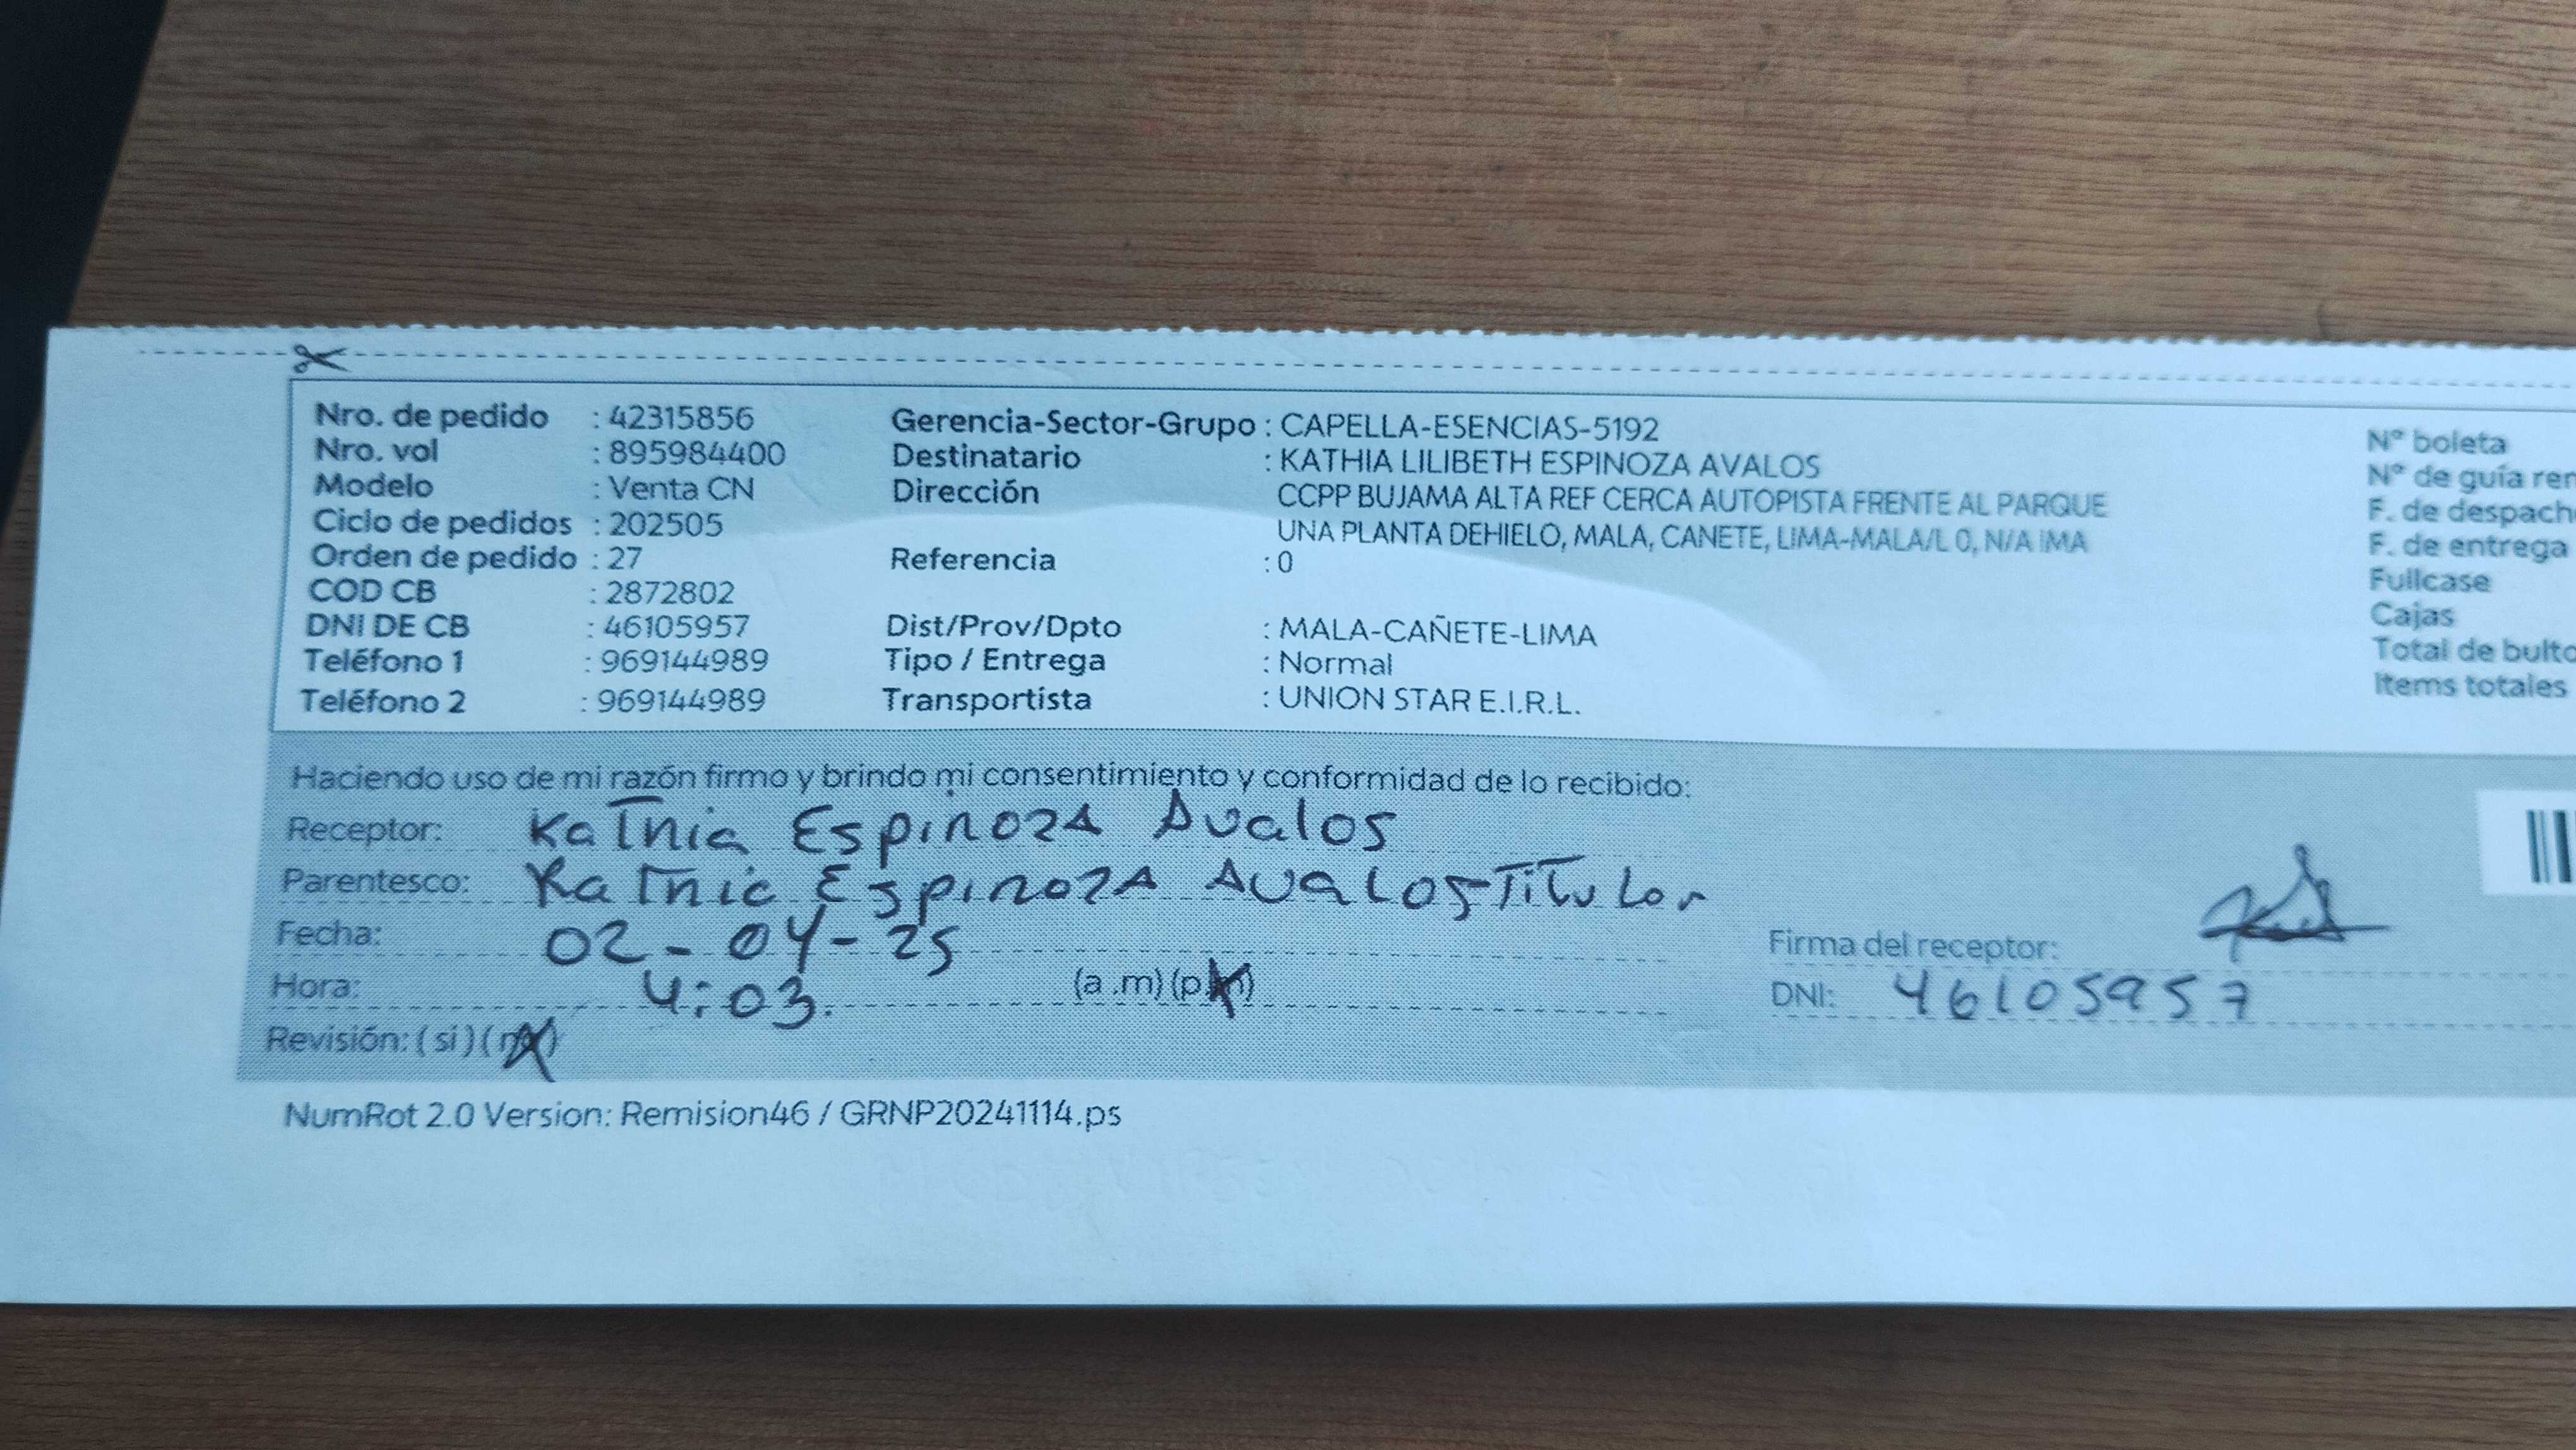 Nro. de pedido : 42315856
Nro. vol : 895984400
Modelo : Venta CN
Ciclo de pedidos : 202505
Orden de pedido : 27
COD CB : 2872802
DNI DE CB : 46105957
Teléfono 1 : 969144989
Teléfono 2 : 969144989
Gerencia-Sector-Grupo : CAPELLA-ESENCIAS-5192
Destinatario : KATHIA LILIBETH ESPINOZA AVALOS
Dirección CCPP BUJAMA ALTA REF CERCA AUTOPISTA FRENTE AL PARQUE
UNA PLANTA DEHIELO, MALA, CANETE, LIMA-MALA/L 0, N/A IMA
Referencia : 0
Dist/Prov/Dpto : MALA-CAÑETE-LIMA
Tipo / Entrega : Normal
Transportista : UNION STAR E.I.R.L.
N° boleta
N° de guía rem
F. de despach
F. de entrega
Fullcase
Cajas
Total de bulto
Items totales
Haciendo uso de mi razón firmo y brindo mi consentimiento y conformidad de lo recibido:
Receptor: Kathia Espinoza Avalos
Parentesco: Kathia Espinoza Avalos Titular
Fecha: 02-04-25
Hora: 4:03. (a.m) (p.m)
Revisión: ( si ) ( no )
Firma del receptor:
DNI: 46105957
NumRot 2.0 Version: Remision46 / GRNP20241114.ps